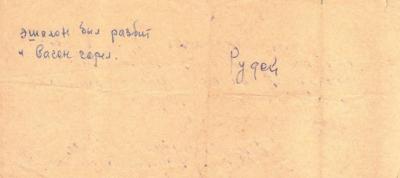 эшелон был разбит
и Вагон горел.
Рудой